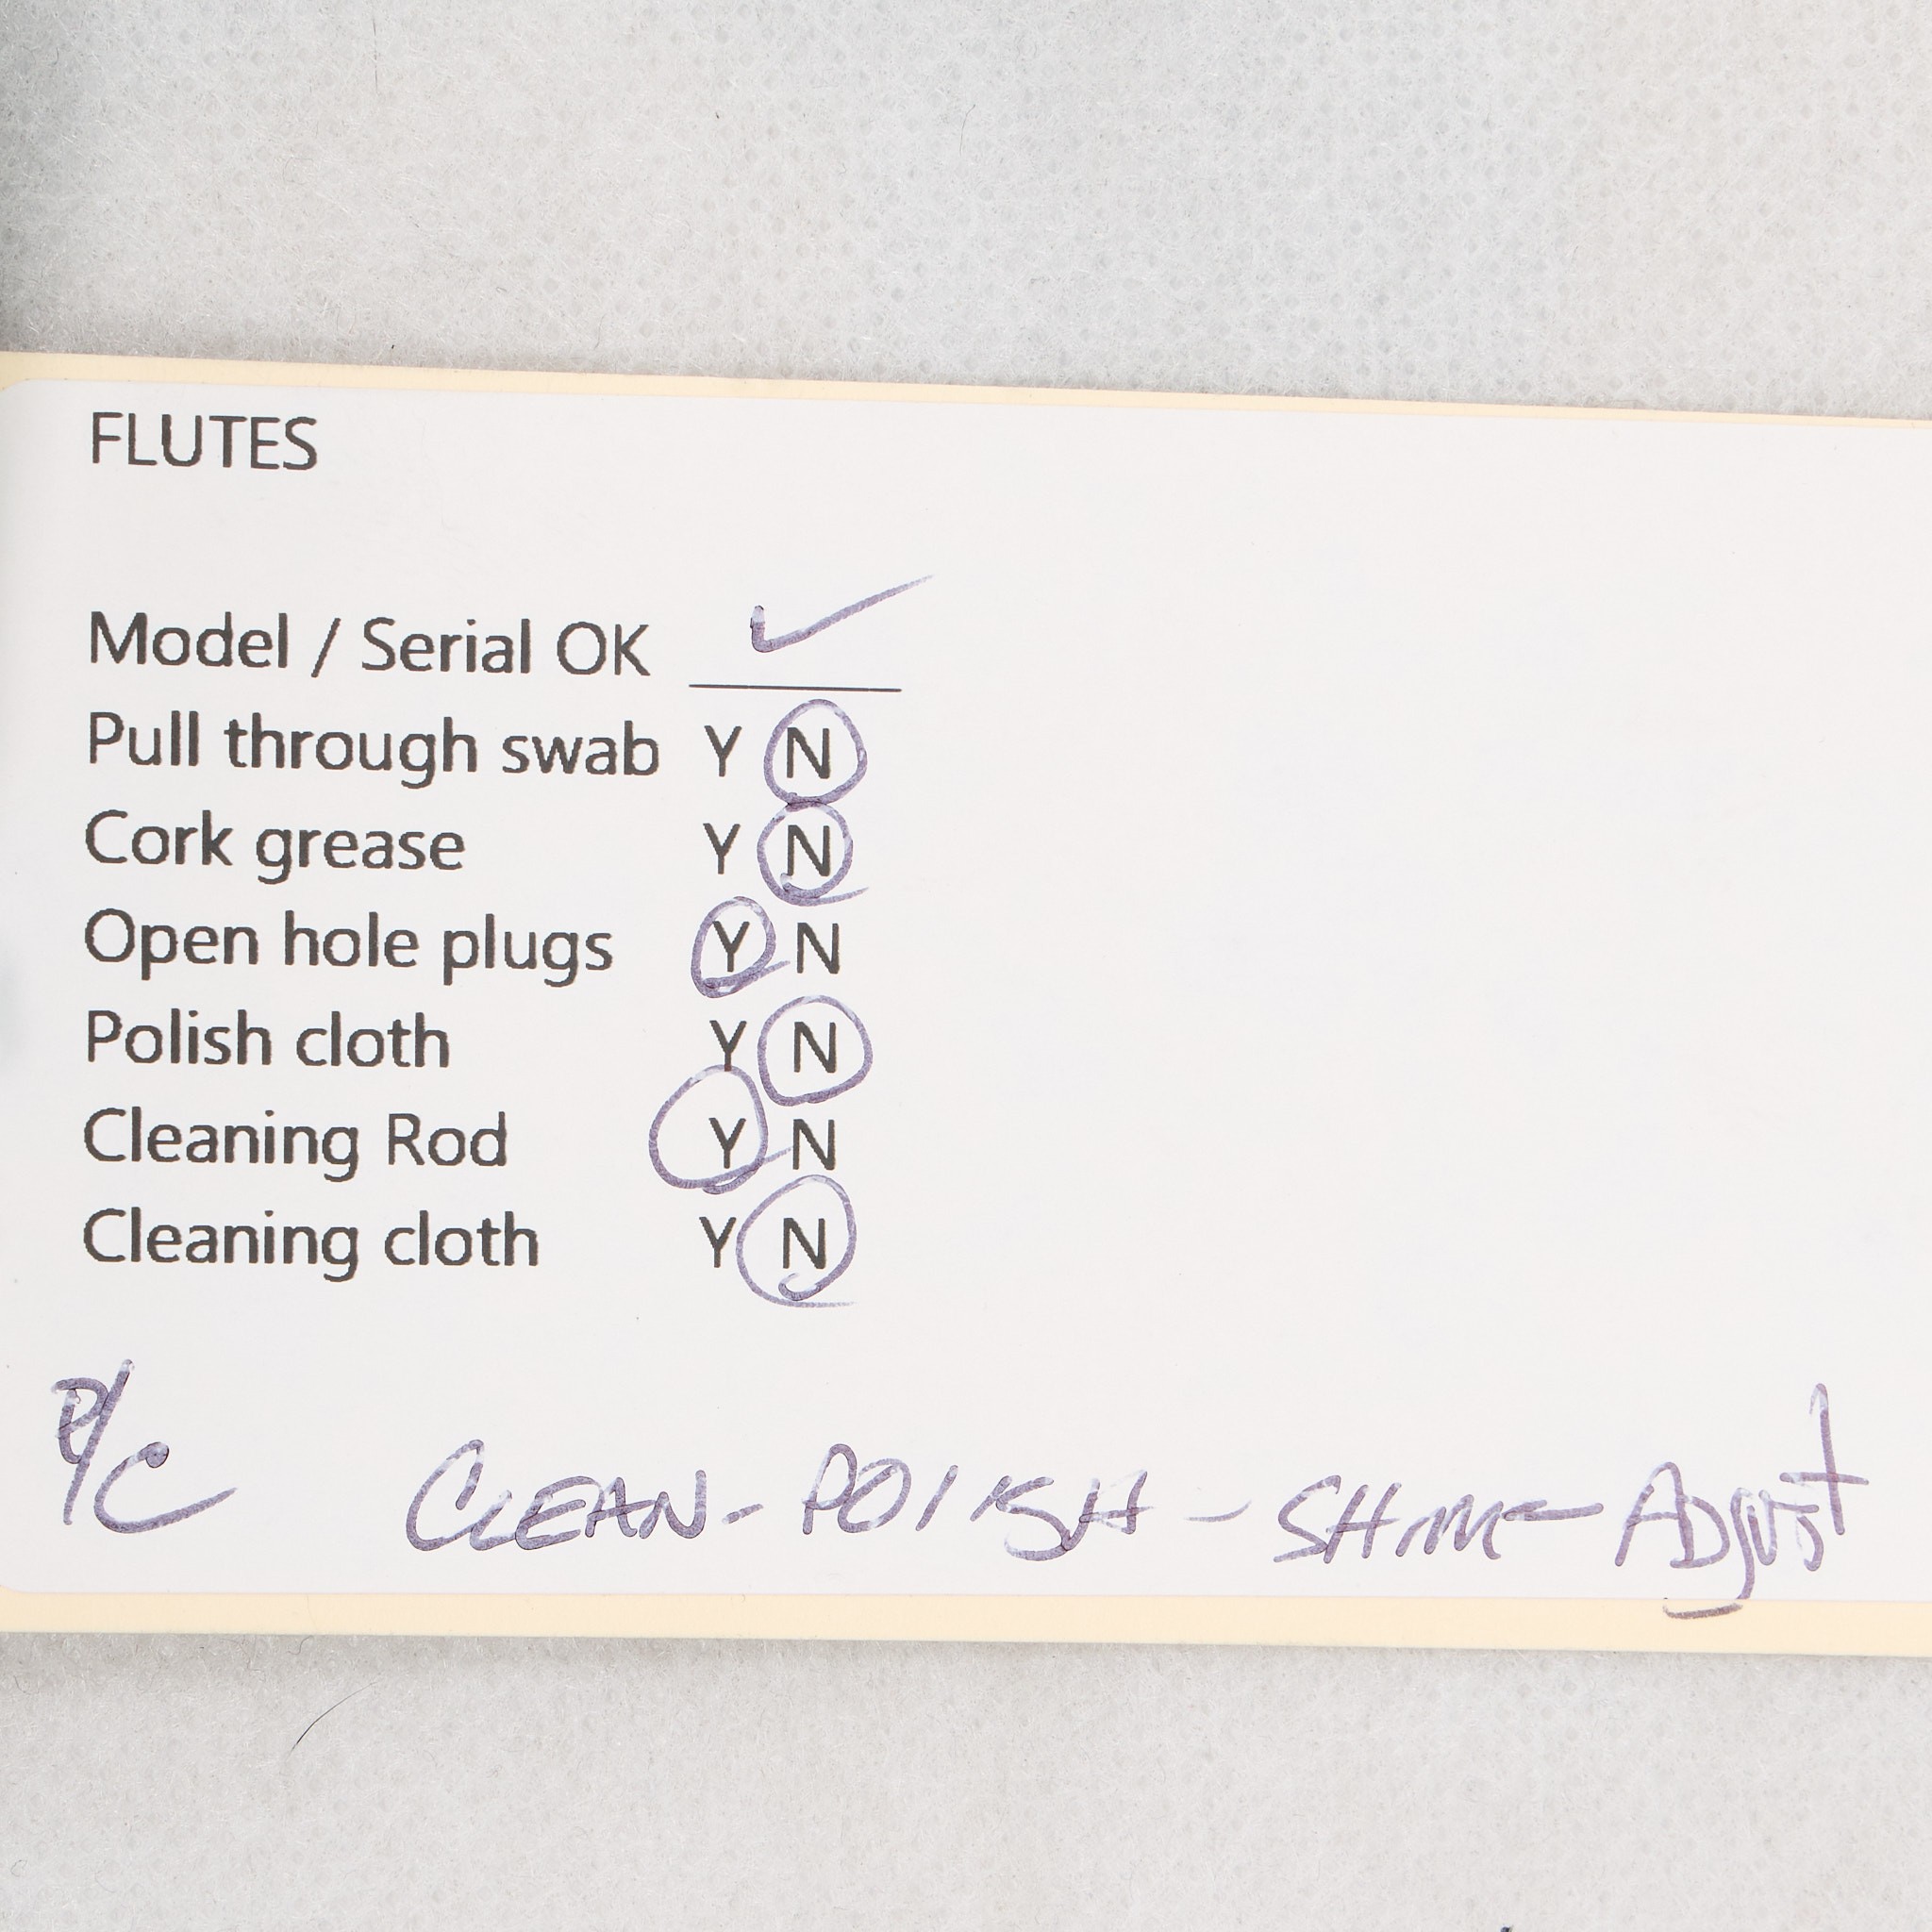 FLUTES
Model / Serial OK ✓
Pull through swab Y N
Cork grease Y N
Open hole plugs Y N
Polish cloth Y N
Cleaning Rod Y N
Cleaning cloth Y N
P/C CLEAN - POLISH - SHIM - ADJUST